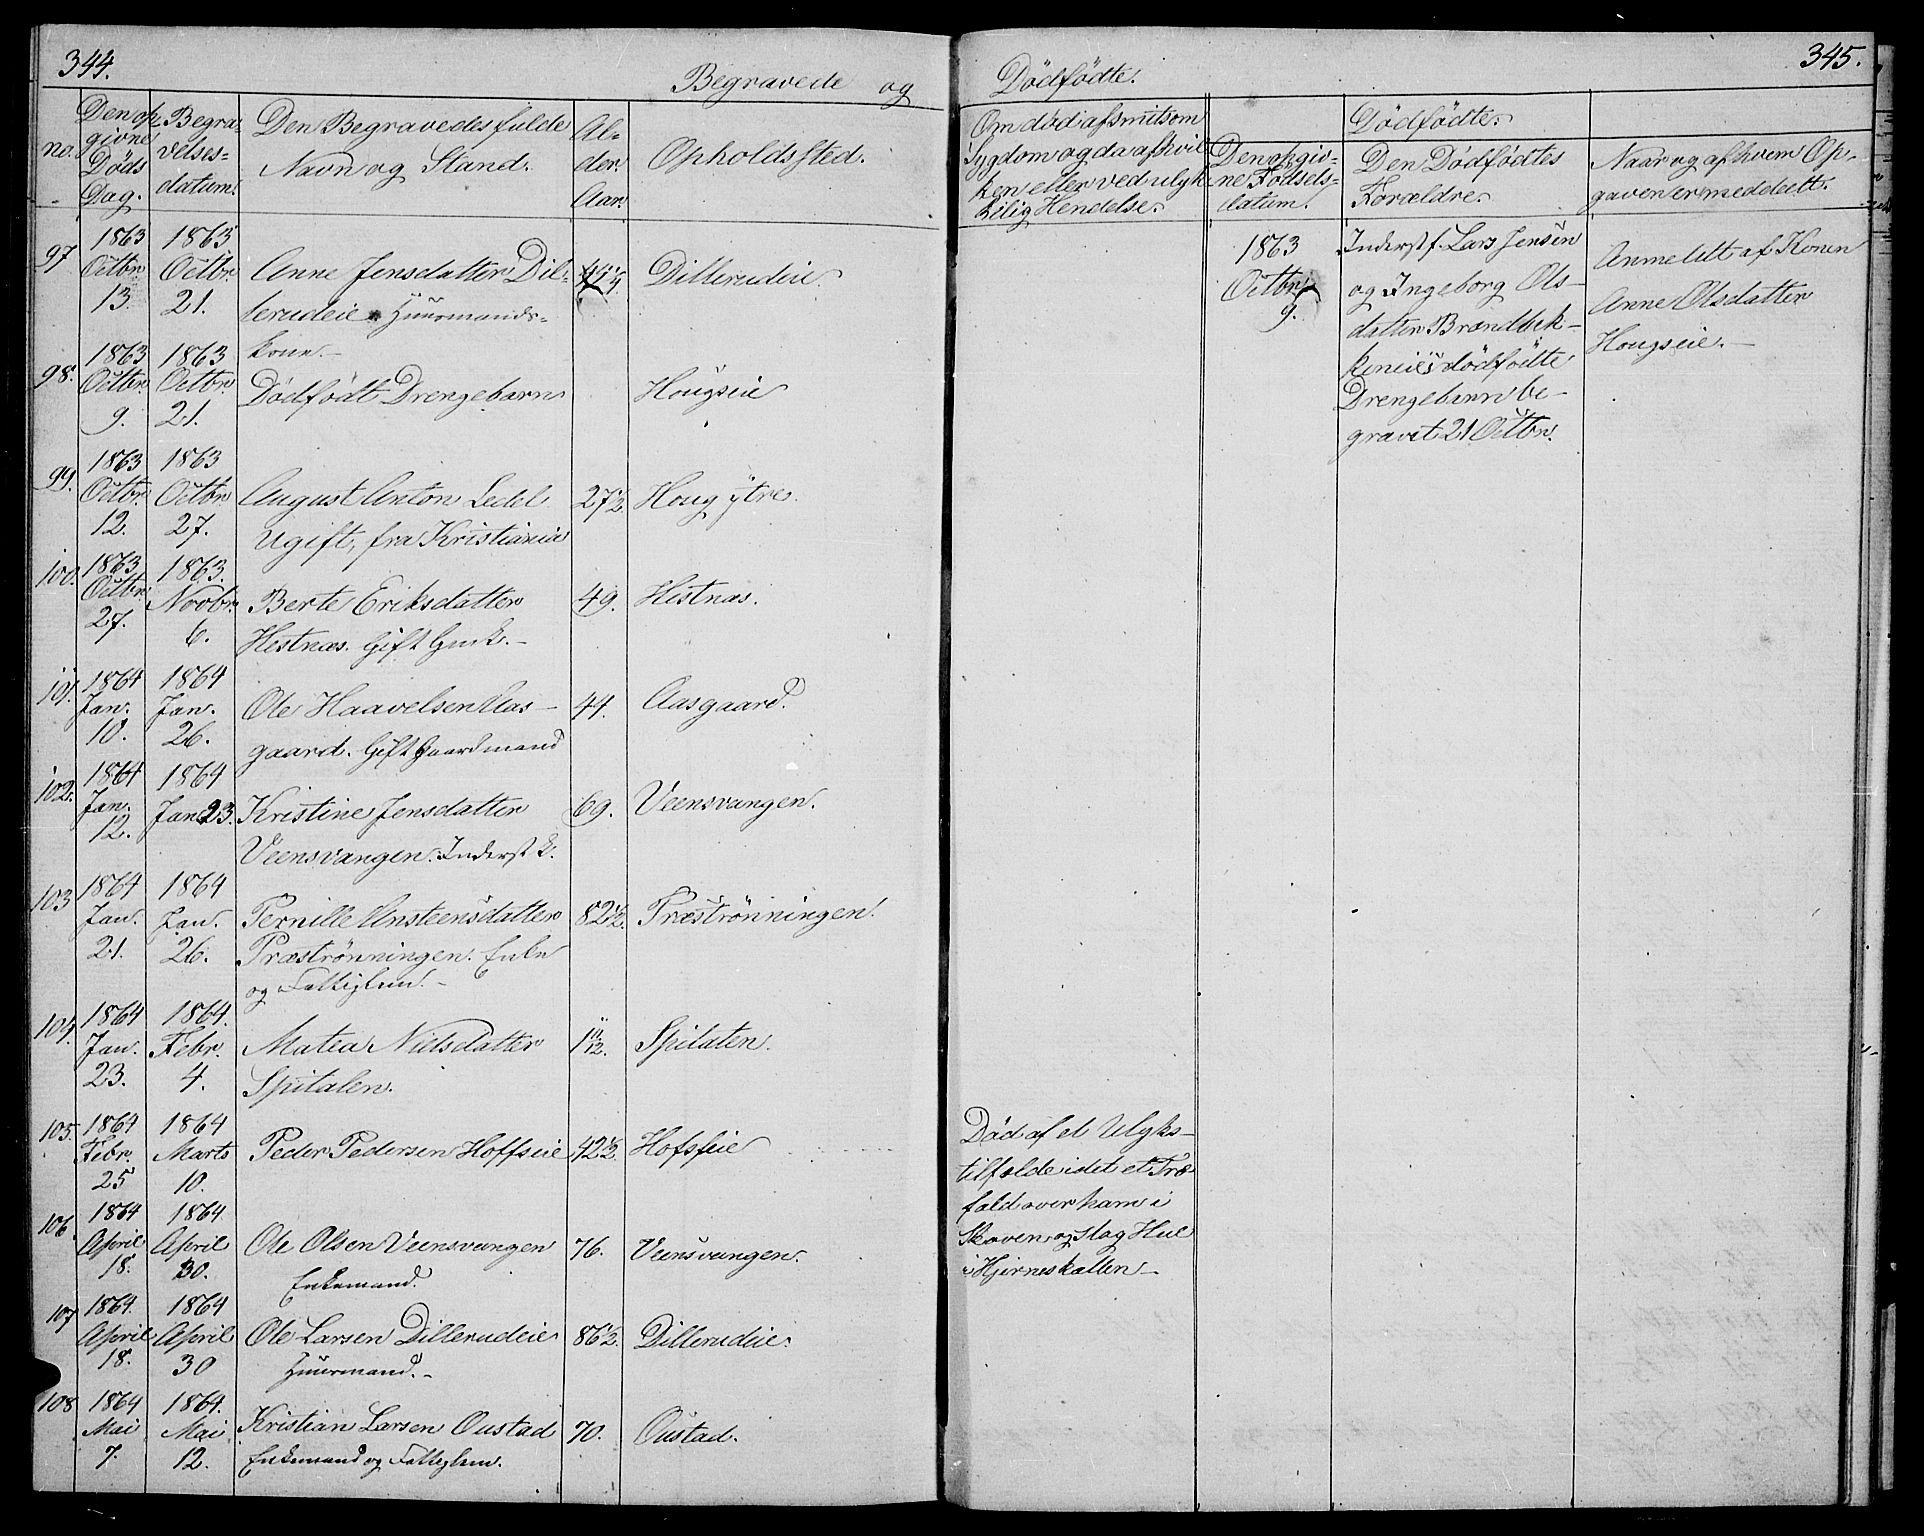 344.
Begravede og
no.
Den op-
givne
Døds
Dag.
Begra-
velses-
datum.
Den Begravedes fulde
Navn og Stand.
Al-
der.
Aar.
Opholdssted.
97
1863
Octbr.
13.
1863
Octbr.
21.
Anne Jensdatter Dil-
lerudeie Huusmands-
kone.-
Dillerudeie.
98.
1863
Octbr.
9.
1863
Octbr.
21.
Dödfödt Drengebarn
Hougseie
99.
1863
Octbr.
12.
1863
Octbr.
27.
August Anton Ledel
Ugift, fra Kristiania
27½
Houg ytre.
100.
1863
Octbr.
27.
1863.
Novbr.
6.
Berte Eriksdatter
Hestnæs. Gift Gmk.-
49.
Hestnæs.
101.
1864
Jan.
10.
1864
Jan.
26.
Ole Haavelsen Aas-
gaard. Gift Gaardmand
44.
Aasgaard.
102.
1864
Jan.
12.
1864
Jan 23.
Kristine Jensdatter
Veensvangen. Inderst k.
69.
Veensvangen.
103
1864
Jan.
21.
1864
Jan.
26.
Pernille Ansteensdatter
Præströnningen. Enke
og Fattiglem.-
82½.
Præströnningen.
104.
1864
Jan.
23.
1864.
Febr.
4.
Matea Nielsdatter
Spitalen.
1 11/12.
Spitalen.
105.
1864
Febr.
25
1864
Marts
10.
Peder Pedersen Hoffseie
42½
Hofseie
106.
1864
April
18.
1864
April
30.
Ole Olsen Veensvangen
Enkemand.
76.
Veensvangen.
107
1864.
April
18.
1864
April
30
Ole Larsen Dillerudeie
Huusmand.-
86½.
Dillerudeie.
108
1864
Mai
7.
1864.
Mai
12.
Kristian Larsen Oustad
Enkemand og Fattiglem.
70.
Oustad.
345.
Dödfödte.
Om död af smitsom
Sygdom og da af hvil
ken eller ved ulyk
kelig Hendelse.
Den opgiv-
ne Födsels-
datum.
Dödfödte.
Den Dödfödtes
Forældre.
Naar og af hvem Op-
gaven er meddelt.
1863
Octbr.
9.
Inderst f. Lars Jensen
og Ingeborg Ols-
datter Brændbek-
keneies dödfödte
Drengebarn be-
gravet 21 Octbr.
Anmeldt af Konen
Anne Olsdatter
Hougseie.-
Död af et Ulyks-
tilfælde idet et Træ
fald over ham i
Skoven og slog Hul
i Hjerneskallen-